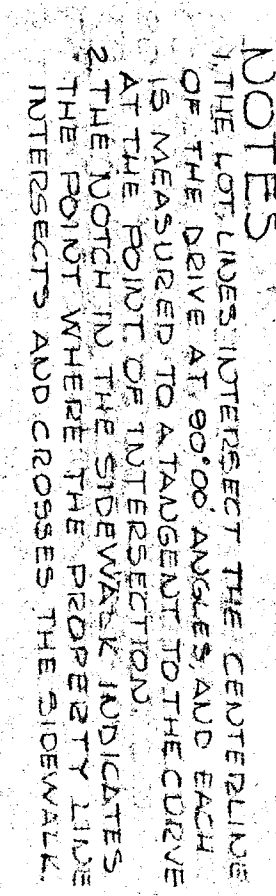 NOTES
1. THE LOT LINES INTERSECT THE CENTERLINE
OF THE DRIVE AT 90°00' ANGLES, AND EACH
IS MEASURED TO A TANGENT TO THE CURVE
AT THE POINT OF INTERSECTION.
2. THE NOTCH IN THE SIDEWALK INDICATES
THE POINT WHERE THE PROPERTY LINE
INTERSECTS AND CROSSES THE SIDEWALK.